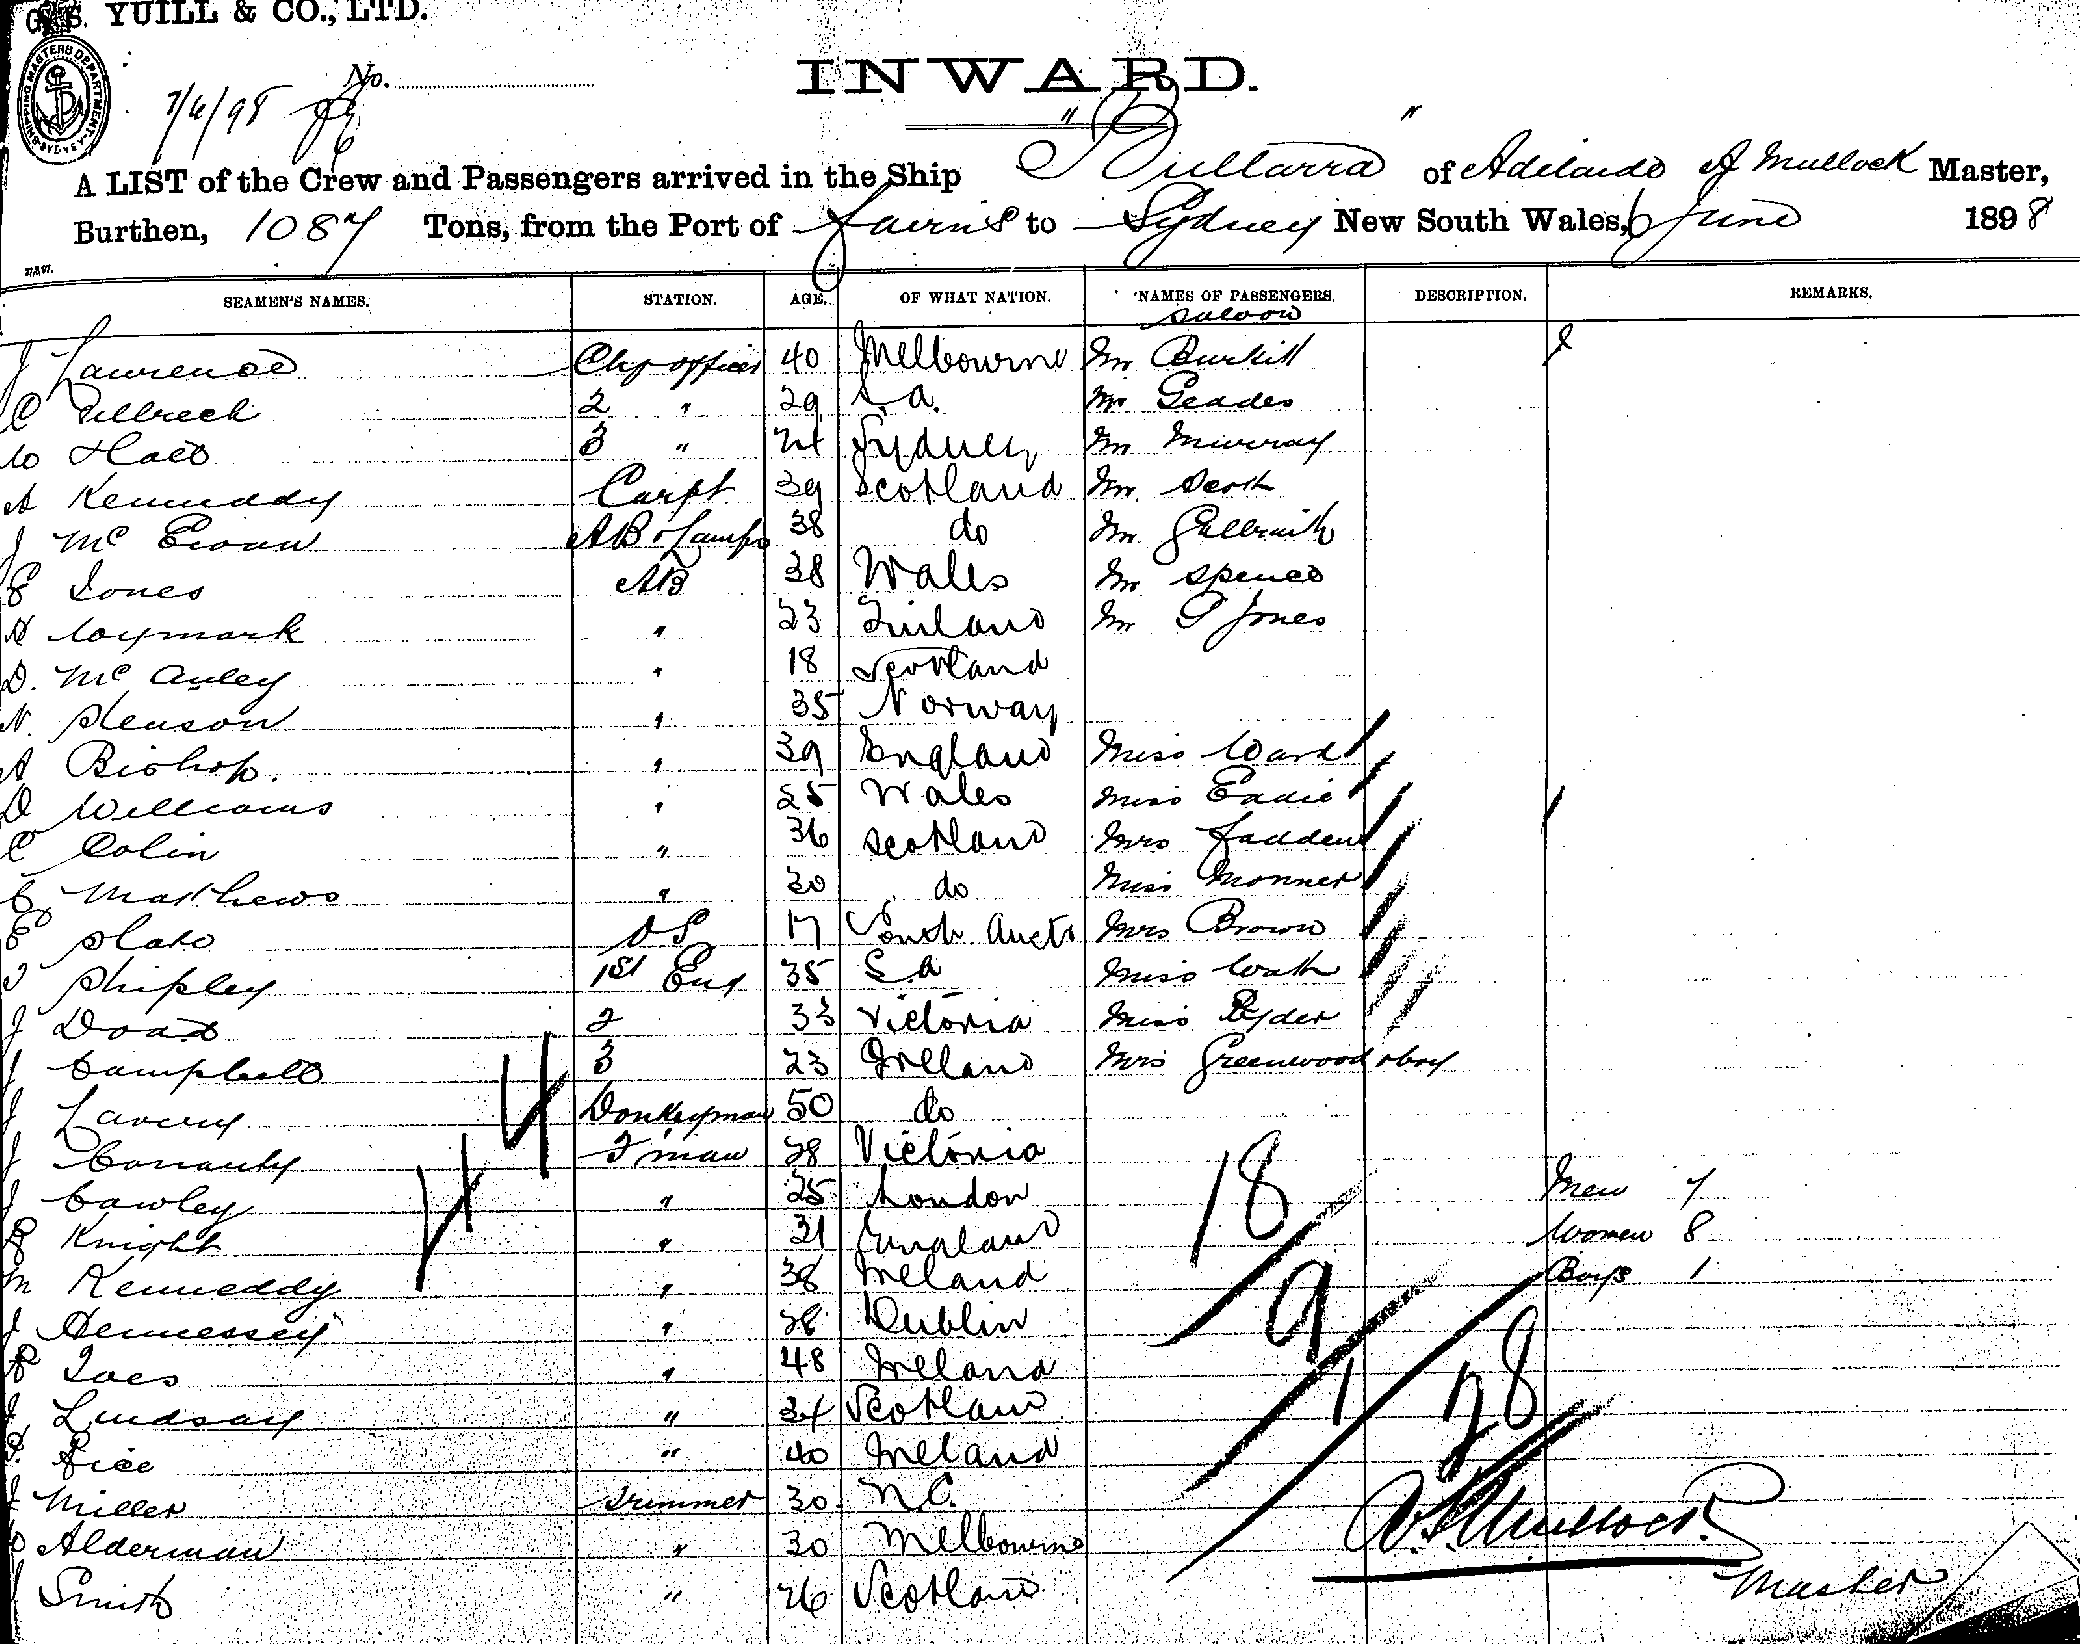 G. S. YUILL & CO., LTD.
SHIPPING MASTERS DEPARTMENT SYDNEY
No.
7/6/98
INWARD.
A LIST of the Crew and Passengers arrived in the Ship "Bullarra" of Adelaide A Mullock Master,
Burthen, 1087 Tons, from the Port of Cairns to Sydney New South Wales, 6 June 1898
SEAMEN'S NAMES. STATION. AGE. OF WHAT NATION. NAMES OF PASSENGERS. DESCRIPTION. REMARKS.
Saloon
J Lawrence Chf officer 40 Melbourne Mr Burkitt
C 2 " 29 S.a. Mr Geddes
W Hall 3 " 24 Sydney Mr Murray
A Kenneddy Carpt 39 Scotland Mr. Scott
J Mc Ewan AB & Lamps 38 do Mr Galbraith
E Jones AB 38 Wales Mr Spence
" 23 Finland Mr Jones
D. Mc Auley " 18 Scotland
N. Stenson " 35 Norway
A Bishop. " 39 England Miss Ward
D Williams " 25 Wales Miss Eadie
C Colin " 36 Scotland Mrs Fadden
C Matthews " 30 do Miss Monner
E Slato O S 17 South Austr Mrs Brown
Shipley 1st Eng 35 S.a Miss Watt
J Doad 2 33 Victoria Miss Ryder
J Campbell 3 23 Ireland Mrs Greenwood & boy
J Lavery Donkeyman 50 do
J F'man 28 Victoria
J Cawley " 25 London Men 7
Knight " 31 England Women 8
M Kenneddy " 38 Ireland Boys 1
J Hennessey " 28 Dublin
" 48 Ireland
J Lindsay " 34 Scotland
P. Rice " 40 Ireland
J Miller Trimmer 30 N.C.
Alderman " 30 Melbourne
J Smith " 26 Scotland
18
9
1
28
A. Mullock.
Master